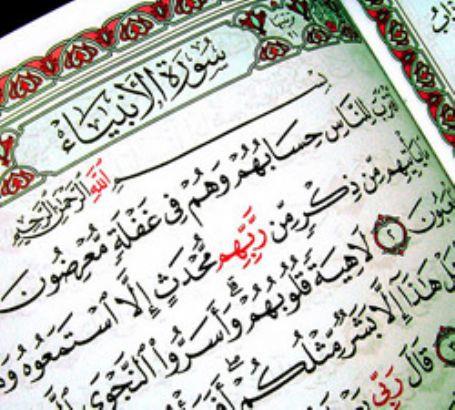 سُورَةُ الأَنْبِيَاءِ
بِسْمِ ٱللَّهِ ٱلرَّحْمَٰنِ ٱلرَّحِيمِ
لِلنَّاسِ حِسَابُهُمْ وَهُمْ فِى غَفْلَةٍ مُّعْرِضُونَ
يَأْتِيهِم مِّن ذِكْرٍ مِّن رَّبِّهِم مُّحْدَثٍ إِلَّا ٱسْتَمَعُوهُ
٢ لَاهِيَةً قُلُوبُهُمْ ۗ وَأَسَرُّوا۟ ٱلنَّجْوَى
هَٰذَآ إِلَّا بَشَرٌ مِّثْلُكُمْ ۖ
قَالَ رَبِّى